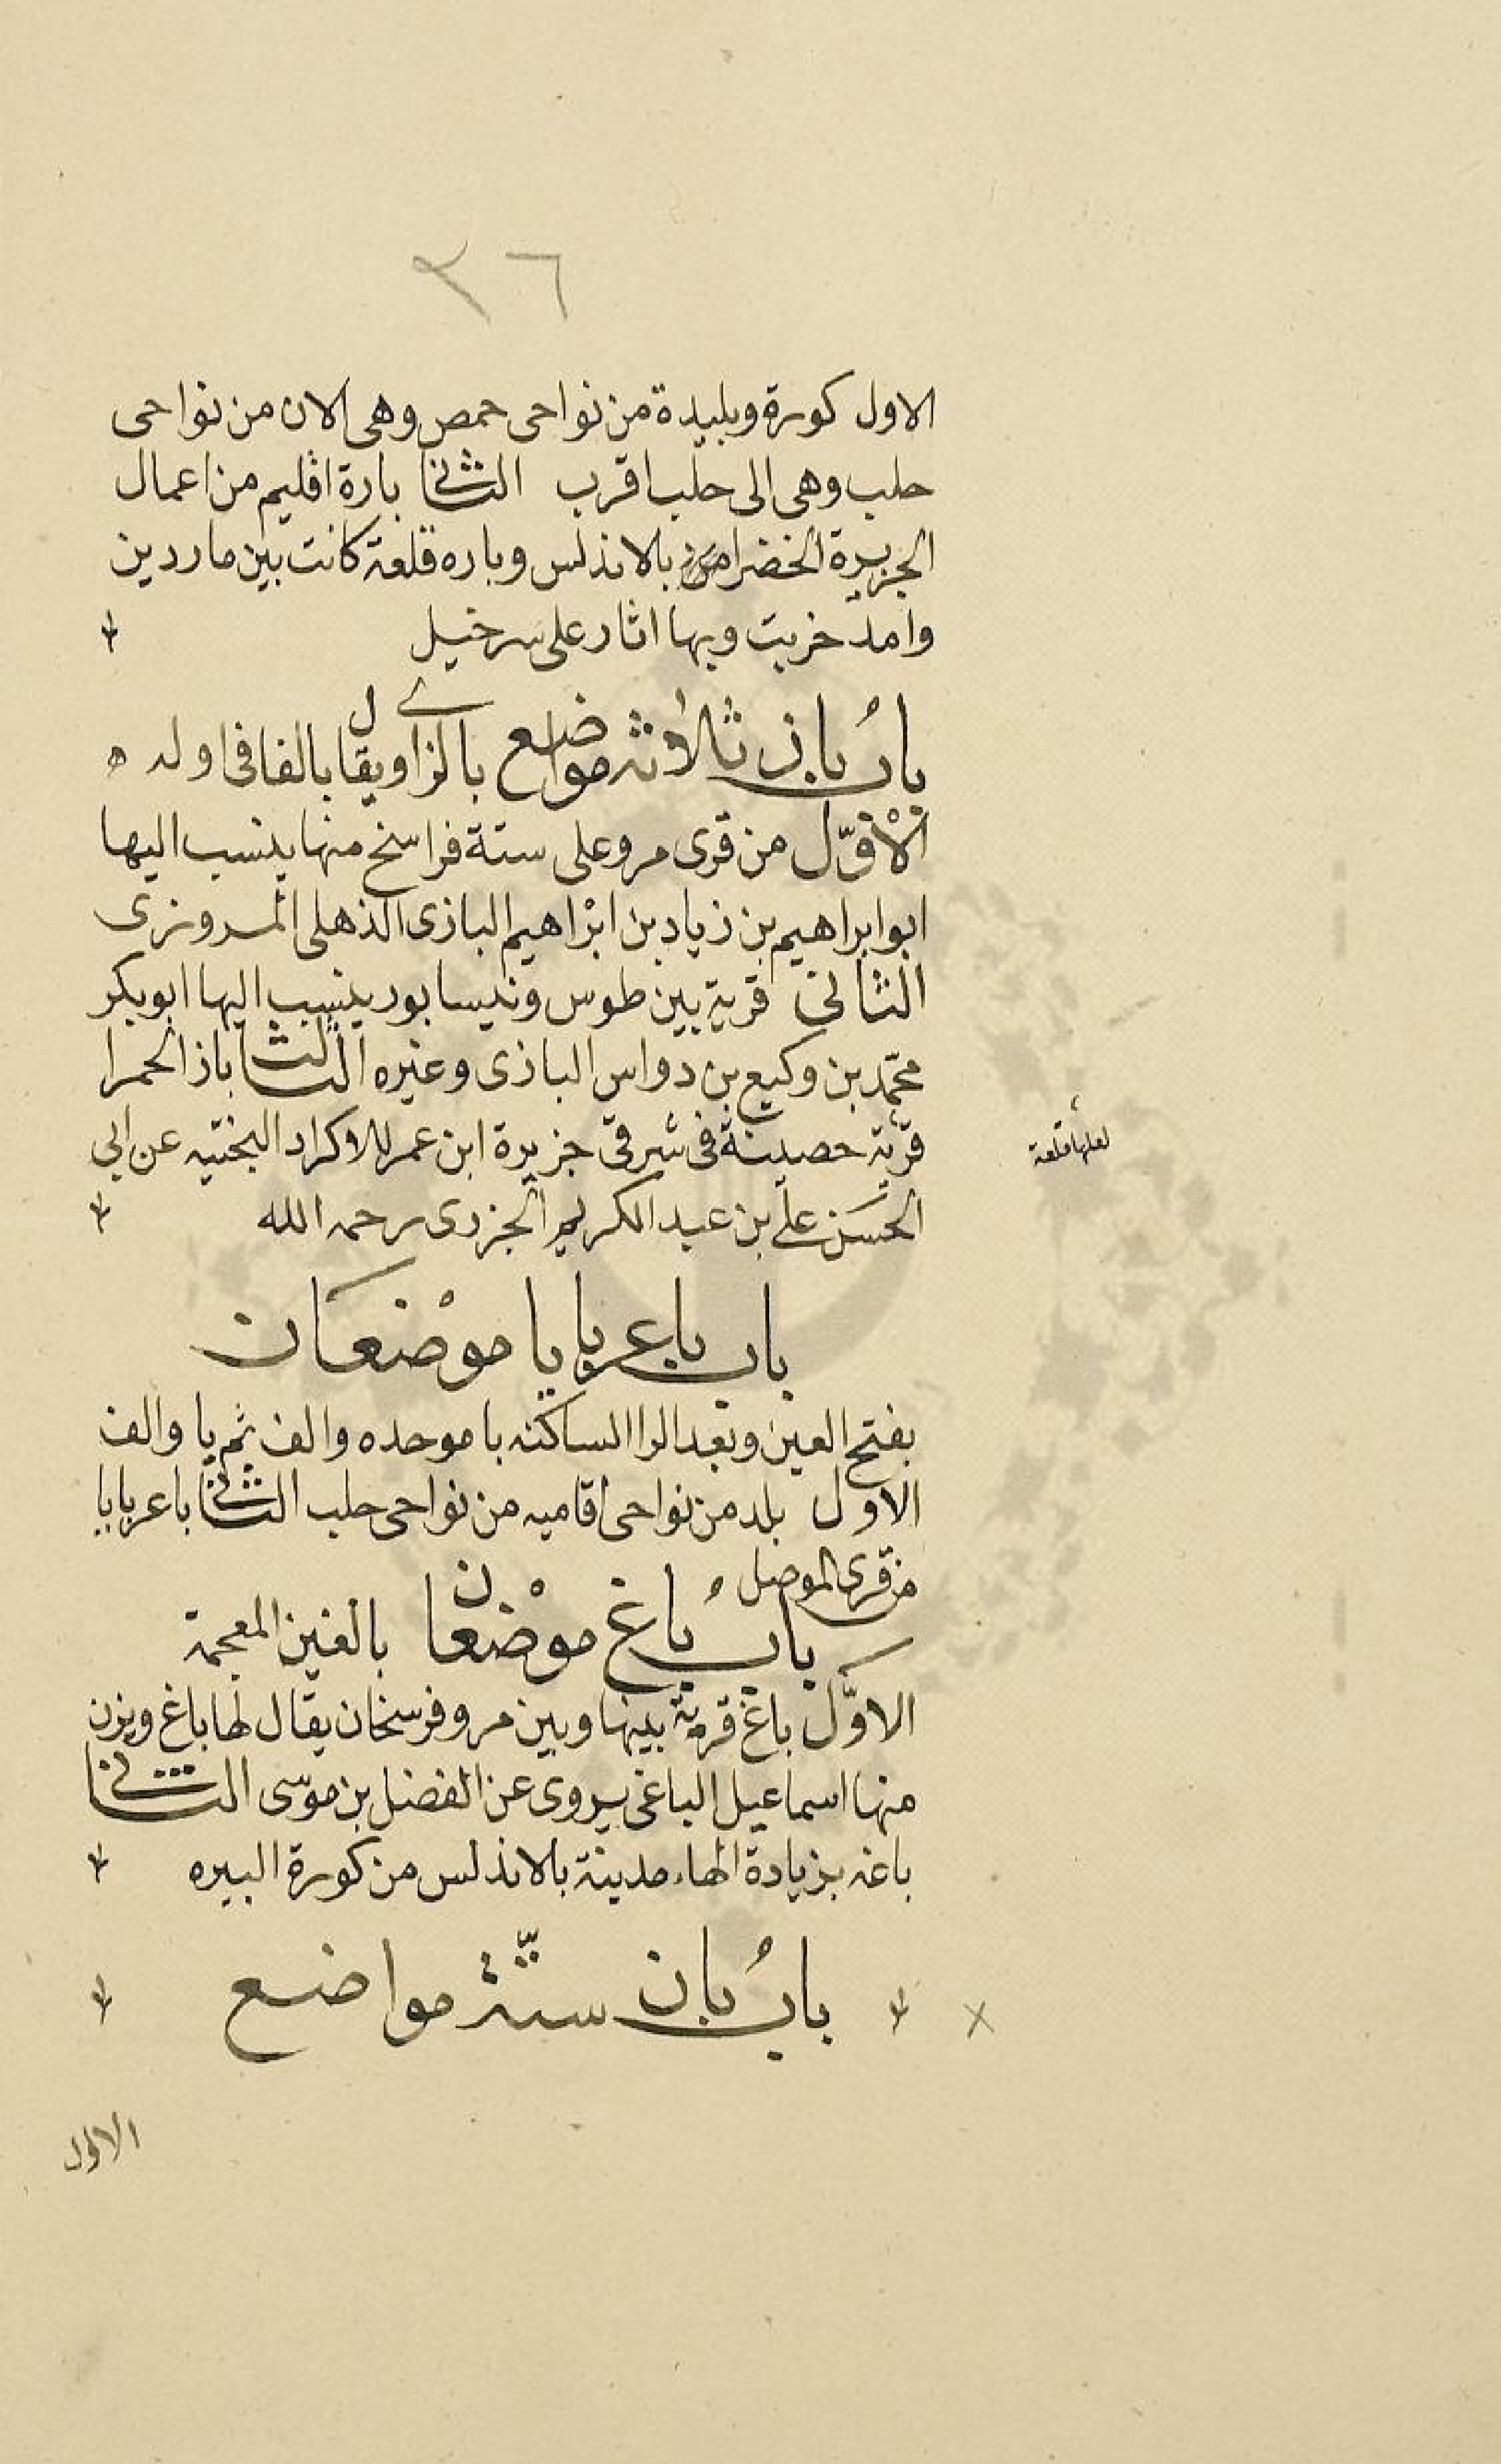 ٢٦
الاول كورة وبليدة من نواحى حمص وهى الان من نواحى
حلب وهى الى حلب اقرب الثانى بارة اقليم من اعمال
الجزيرة الخضرا بالاندلس وباره قلعة كانت بين ماردين
وامد خربت وبها اثار على سرخيل
بابُ باز ثلاثة مواضع بالزاى ويقال بالفا فى اوله ه
الأوّل من قرى مرو على ستة فراسخ منها ينسب اليها
ابو ابراهيم بن زياد بن ابراهيم البازى الذهلى المروزى
الثانى قرية بين طوس ونيسابور ينسب اليها ابو بكر
محمّد بن وكيع بن دواس البازى وغيره الثالث باز الحمرا
قرية حصينة فى شرقى جزيرة ابن عمر للاكراد البختيه عن ابي
لعلها قلعة
الحسَن على بن عبد الكريم الجزرى رحمه الله
باب باعربايا موْضعَان
بفتح العين وبعد الرا الساكنه با موحده والف ثم يا والف
الاول بلد من نواحى افاميه من نواحى حلب الثانى باعربايا
من قرى الموصل
بابُ باغ موْضعان بالغين المعجمة
الاوّل باغ قرية بينها وبين مرو فرسخان يقال لها باغ وبرن
منها اسماعيل الباغى يروى عن الفضل بن موسى الثانى
باغه بزيادة الهاء مدينة بالاندلس من كورة البيره
بابُ بان ستّة مواضع
الاول